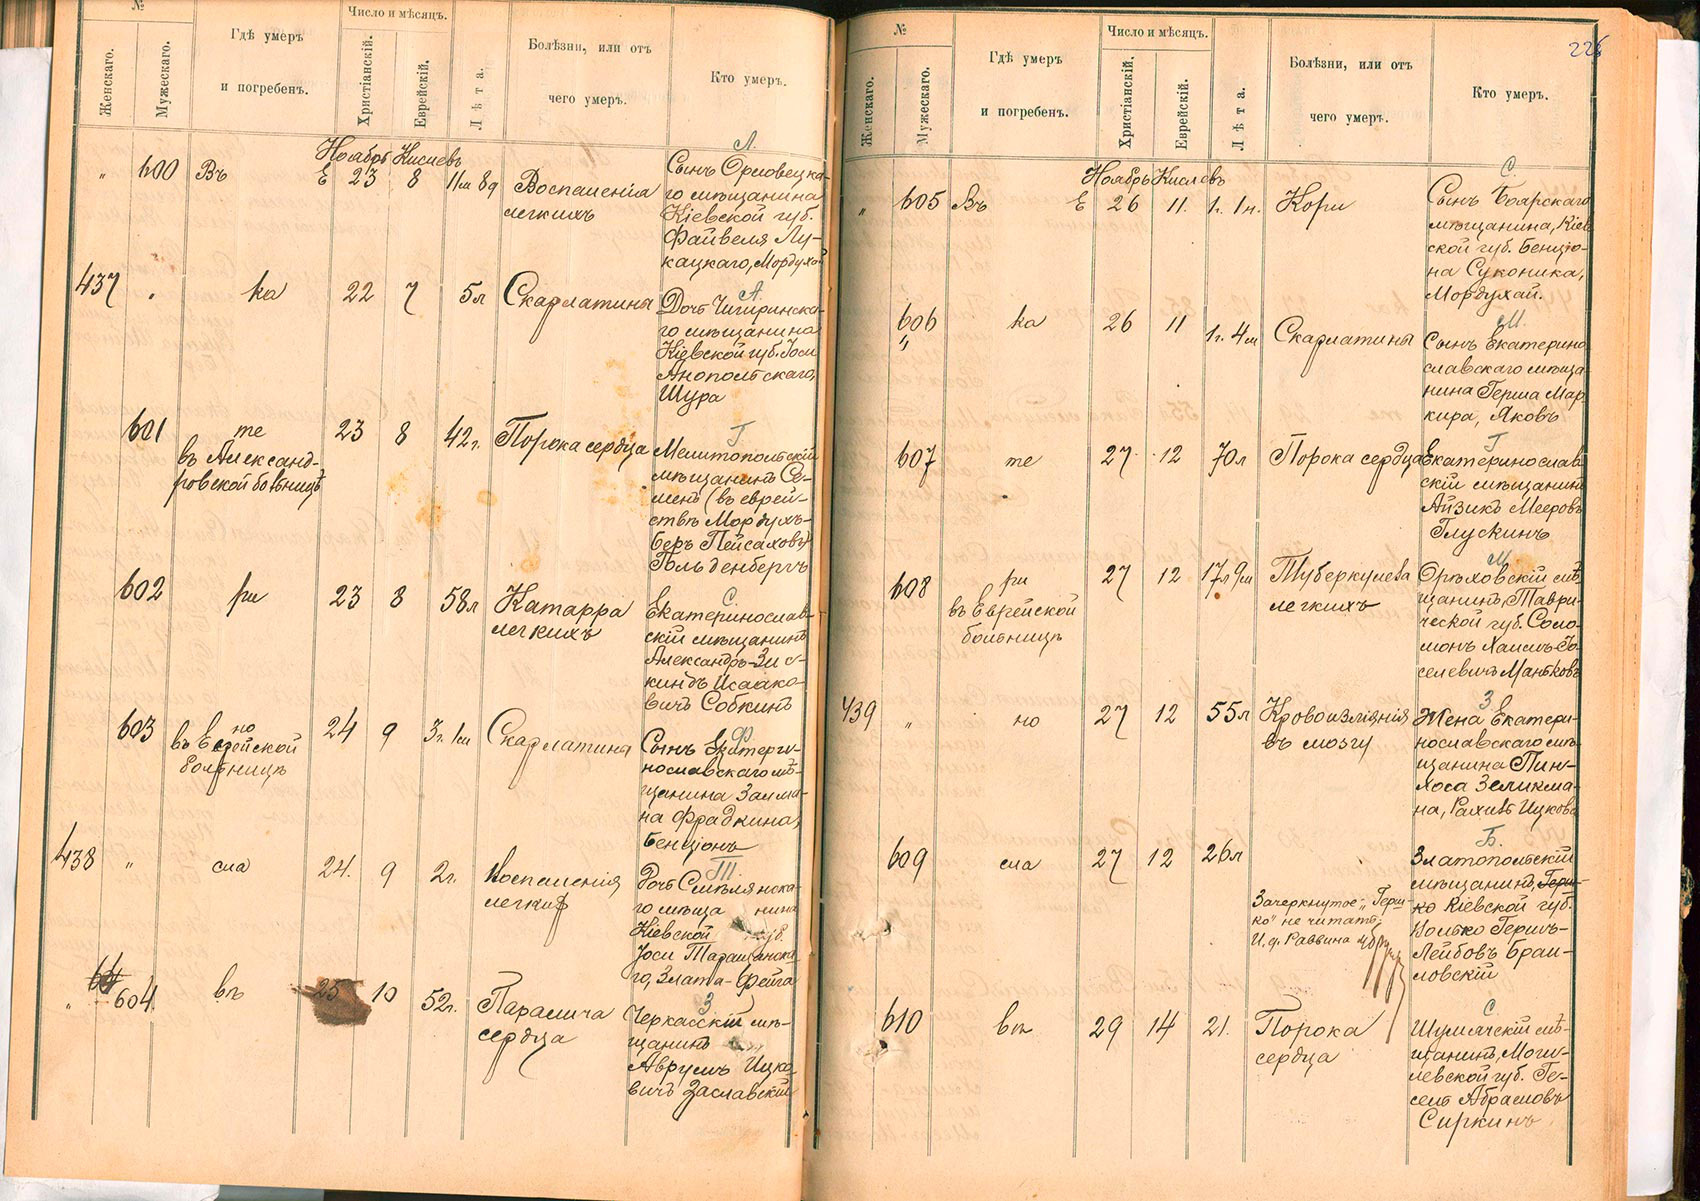 №
Женскаго.
Мужескаго.
Гдѣ умеръ
и погребенъ.
Число и мѣсяцъ.
Христіанскій.
Еврейскій.
Лѣта.
Болѣзни, или отъ
чего умеръ.
Кто умеръ.
Ноябрь Кислевъ
" 600 Въ Е 23 8 11м 8д
Воспаленія
легкихъ
Л.
Сынъ Орловецка-
го мѣщанина
Кіевской губ.
Файвеля Лу-
кацкаго, Мордухай
437 " ка 22 7 5л Скарлатины
А.
Дочь Чигиринска-
го мѣщанина
Кіевской губ. Іоси
Анопольскаго,
Шура
601 те
въ Александ-
ровской больницѣ
23 8 42г. Порока сердца
Г
Мелитопольскій
мѣщанинъ Се-
менъ (въ еврей-
ствѣ Мордухъ-
Беръ Пейсаховъ)
Гольденбергъ
602 ри 23 8 58л Катарра
легкихъ
С.
Екатеринослав-
скій мѣщанинъ
Александръ-Зис-
киндъ Исаако-
вичъ Собкинъ
603 но
въ Еврейской
больницѣ
24 9 3г. 1м Скарлатина
Ф.
Сынъ Екатери-
нославскаго мѣ-
щанина Залма-
на Фрадкина,
Бенціонъ
438 " сла 24. 9 2г. Воспаленія
легких
Т.
Дочь Смѣлянска-
го мѣща нина
Кіевской губ.
Іоси Таращанска-
го, Злата-Фейга
" 604 въ 25 10 52г. Паралича
сердца
З
Черкасскій мѣ-
щанинъ
Аврумъ Ицко-
вичъ Заславскій
226
№
Женскаго.
Мужескаго.
Гдѣ умеръ
и погребенъ.
Число и мѣсяцъ.
Христіанскій.
Еврейскій.
Лѣта.
Болѣзни, или отъ
чего умеръ.
Кто умеръ.
Ноябрь Кислевъ
" 605 Въ Е 26 11. 1г. 1н. Кори
С.
Сынъ Боярскаго
мѣщанина, Кіев
ской губ. Бенціо-
на Суконика,
Мордухай.
606 " ка 26 11 1г. 4м Скарлатины
М.
Сынъ Екатерино
славскаго мѣща
нина Герша Мар
кира, Яковъ
607 те 27 12 70л Порока сердца
Г
Екатеринослав
скій мѣщанинъ
Айзикъ Мееровъ
Глускинъ
608 ри
въ Еврейской
больницѣ
27 12 17л 9м Туберкулеза
легкихъ
М
Орѣховскій мѣ-
щанинъ, Таври-
ческой губ. Соло-
монъ Хаимъ-Іо-
селевичъ Маньковъ
439 " но 27 12 55л Кровоизліянія
въ мозгу
З
Жена Екатери-
нославскаго мѣ-
щанина Пин-
хоса Зеликма-
на, Рахиль Ицкова
609 сла 27 12 26л
Зачеркнутое „Герш-
ко" не читать;
И. д. Раввина
Б.
Златопольскій
мѣщанинъ, Герш-
ко Кіевской губ.
Волько Гершъ-
Лейбовъ Браи-
ловскій
610 въ 29 14 21. Порока
сердца
С
Шумячскій мѣ-
щанинъ, Моги-
левской губ. Ге-
сель Абрамовъ
Сиркинъ